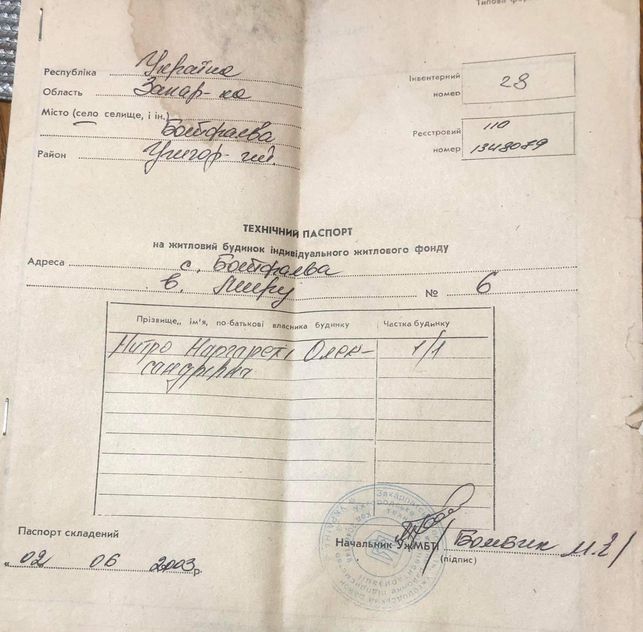 Типова фор
Республіка Україна
Область Закар-ка
Місто (село селище, і ін.)
Ботфалва
Район Ужгор-кий.
Інвентарний номер 28
Реєстровий номер 110
1348079
ТЕХНІЧНИЙ ПАСПОРТ
на житловий будинок індивідуального житлового фонду
Адреса с. Ботфалва
в. Миру № 6
Прізвище, ім'я, по-батькові власника будинку Частка будинку
Олек- 1/1
сандрівна
Паспорт складений
Начальник УжМБТІ
(підпис)
"02 06 2003 р.